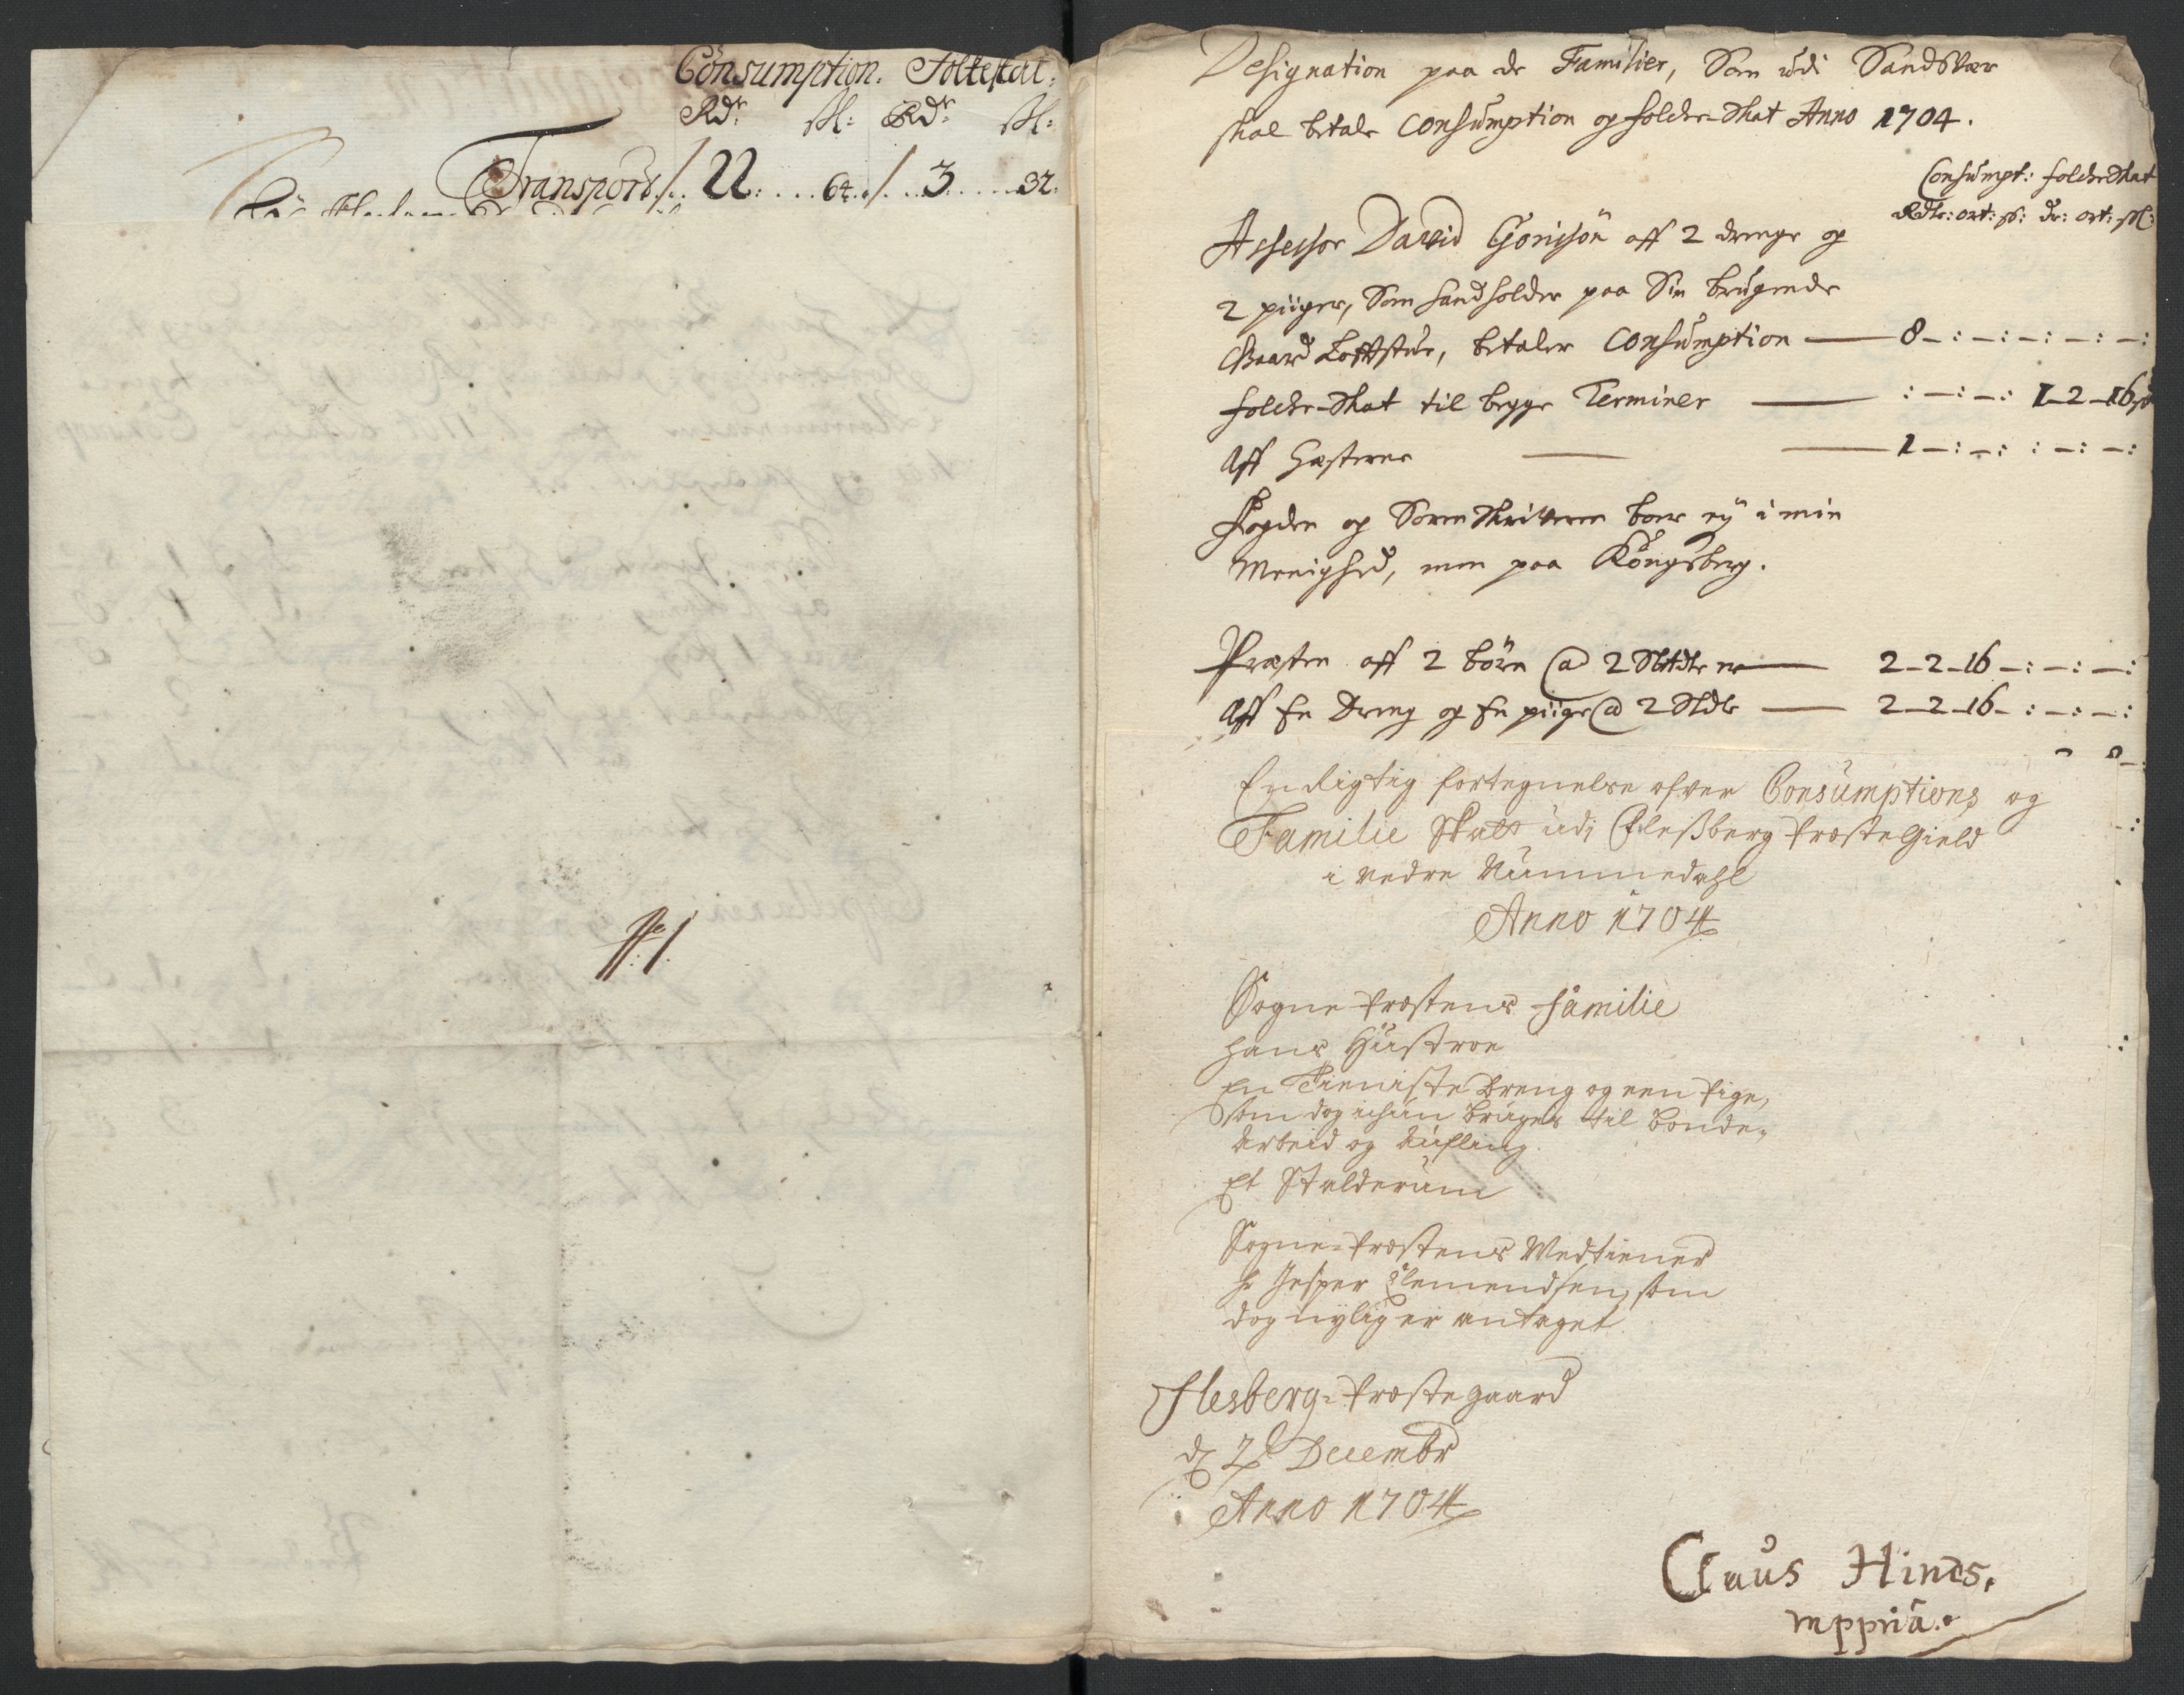 Consumption. Folkeskat:
Rdr: sk: Rdr: sk:
Transport/.. 22:....64../...3......32:
No 1.
Designation paa de Familier, Som udi Sandsvær
skal betale Consumption og folche-Skat Anno 1704.
Consumpt: folcheSkat
Rdlr: ort: s: dr: ort: sk:
Assessor David Gorisøn aff 2 drenge og
2 piiger, Som hand holder paa Sin brugende
Gaard Loftstue, betaler Consumption — 8 -:-:-:-:-:
folche-Skat til begge Terminer — :-:-: 1-2-16
Aff Hesterne — 1-:-: :-:-:
Fogden og Sorenskriveren boer ey i min
Menighed, men paa Kongsberg.
Præsten aff 2 børn @ 2 Sletdlr — 2-2-16-:-:-:
Aff En Dreng og En piige @ 2 Sldlr — 2-2-16-:-:-:
En Rigtig fortegnelse ofver Consumptions og
Familie Skatt udi Flesberg PræsteGield
i Nedre Nummedahl
Anno 1704
Sogne Præstens Familie
hans Hustroe
En Tieniste Dreng og een Pige,
som dog ichun bruges til bonde-
Arbeid og Aufling
Et Stalderum
Sogne-Præstens Medtiener
hr Jesper Clemendsen, som
dog nylig er antaget
Flesberg-Præstegaard
d Decembr
Anno 1704
Claus Hinds.
mppria.